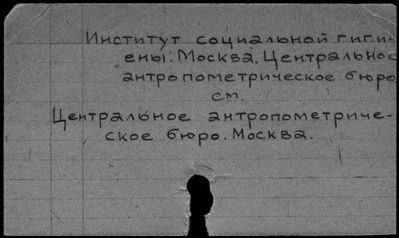 Институт социальной гиги-
ены. Москва. Центральное
антропометрическое бюро
см.
Центральное антропометриче-
ское бюро. Москва.